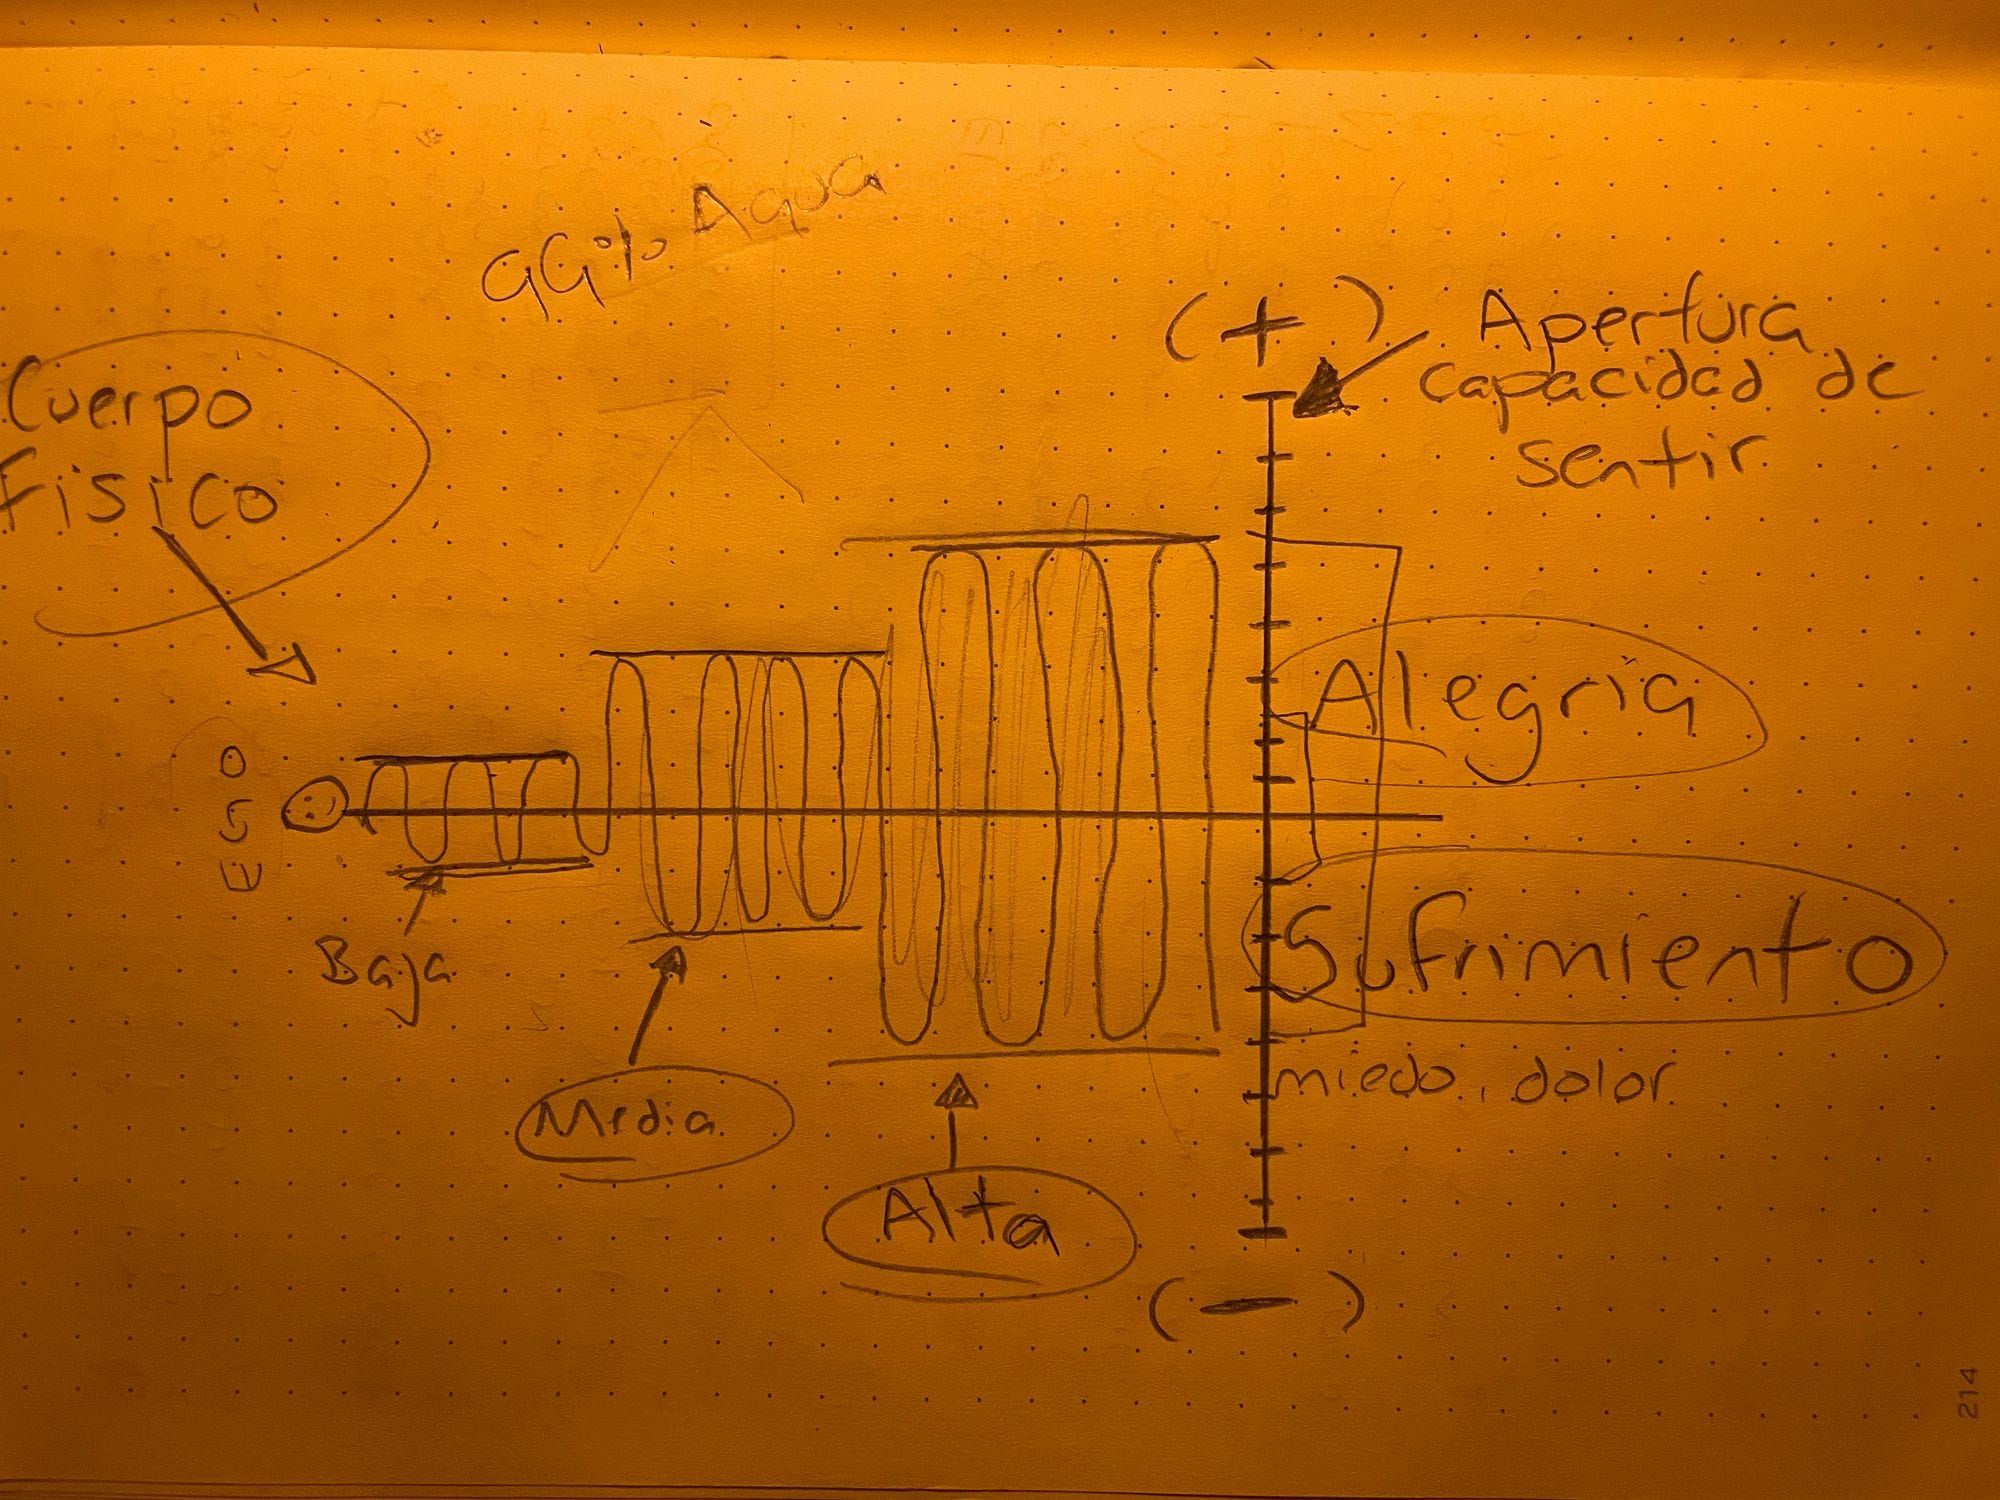 99% Agua
(+)
Apertura
capacidad de
sentir
Cuerpo
Fisico
Alegria
Baja
Sufrimiento
miedo, dolor
Media
Alta
(-)
214